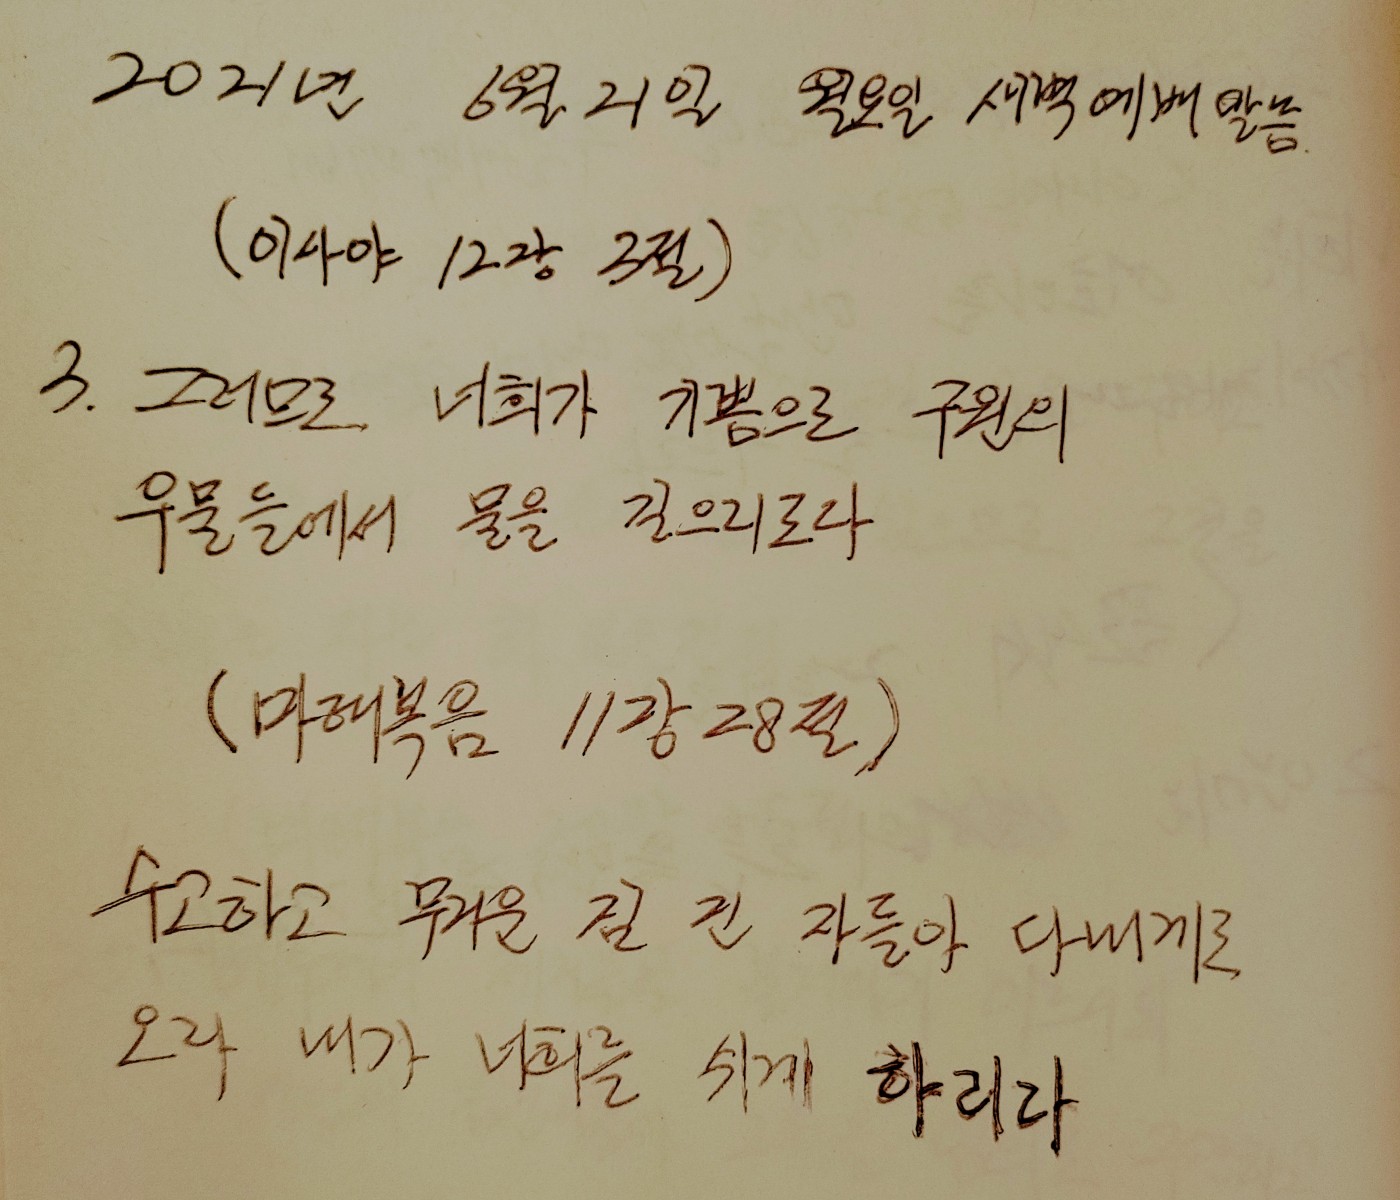 2021년 6월 21일 월요일 새벽예배말씀.
(이사야 12장 3절)
3. 그러므로 너희가 기쁨으로 구원의
우물들에서 물을 길으리로다
(마태복음 11장 28절)
수고하고 무거운 짐 진 자들아 다 내게로
오라 내가 너희를 쉬게 하리라